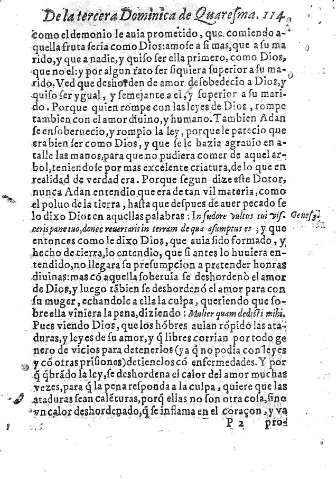 De la tercera Dominica de Quaresma. 114
como el demonio le auia prometido, que comiendo a-
quella fruta seria como Dios: amose a si mas, que a su ma
rido, y que a nadie, y quiso ser ella primero, como Dios,
que no el: y por algun rato ser siquiera superior a su ma-
rido. Ved que deshorden de amor desobedecio a Dios, y
quiso ser ygual, y semejante a el, y superior a su mari-
do. Porque quien rompe con las leyes de Dios, rompe
tambien con el amor diuino, y humano. Tambien Adan
se ensoberuecio, y rompio la ley, porque le parecio que
era bien ser como Dios, y que se le hazia agrauio en a-
talle las manos, para que no pudiera comer de aquel ar-
bol, teniendose por mas excelente criatura, de lo que en
realidad de verdad era. Porque segun dize este Dotor,
nunca Adan entendio, que era de tan vil materia, como
el poluo de la tierra, hasta que despues de auer pecado se
lo dixo Dios en aquellas palabras: In sudore vultus tui ves
ceris pane tuo, donec reuertaris in terram de qua assumptus es; y que
entonces como le dixo Dios, que auia sido formado, y
hecho de tierra, lo entendio, que si antes lo huuiera en-
tendido, no llegara su presumpcion a pretender honras
diuinas: mas cō aquella soberuia se deshordenò el amor
de Dios, y luego tābien se deshordenò el amor para con
su muger, echandole a ella la culpa, queriendo que so-
bre ella viniera la pena, diziendo: Mulier quam dedisti mihi.
Pues viendo Dios, que los hōbres auian rōpido las ata-
duras, y leyes de su amor, y q̄ libres corrian por todo ge
nero de vicios para detenerlos (ya q̄ no podia con leyes
y cō otras prisiones) detienelos cō enfermedades. Y por
q̄ q̄brādo la ley, se deshordena el calor del amor muchas
vezes, para q̄ la pena responda a la culpa, quiere que las
ataduras sean calēturas, porq̄ ellas no son otra cosa, sino
vn calor deshordenado, q̄ se inflama en el coraçon, y va
P 2 prod